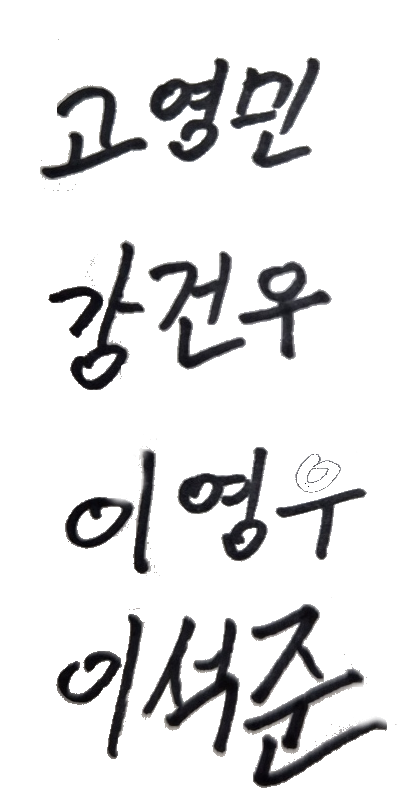 고영민
강건우
이영우
이석준